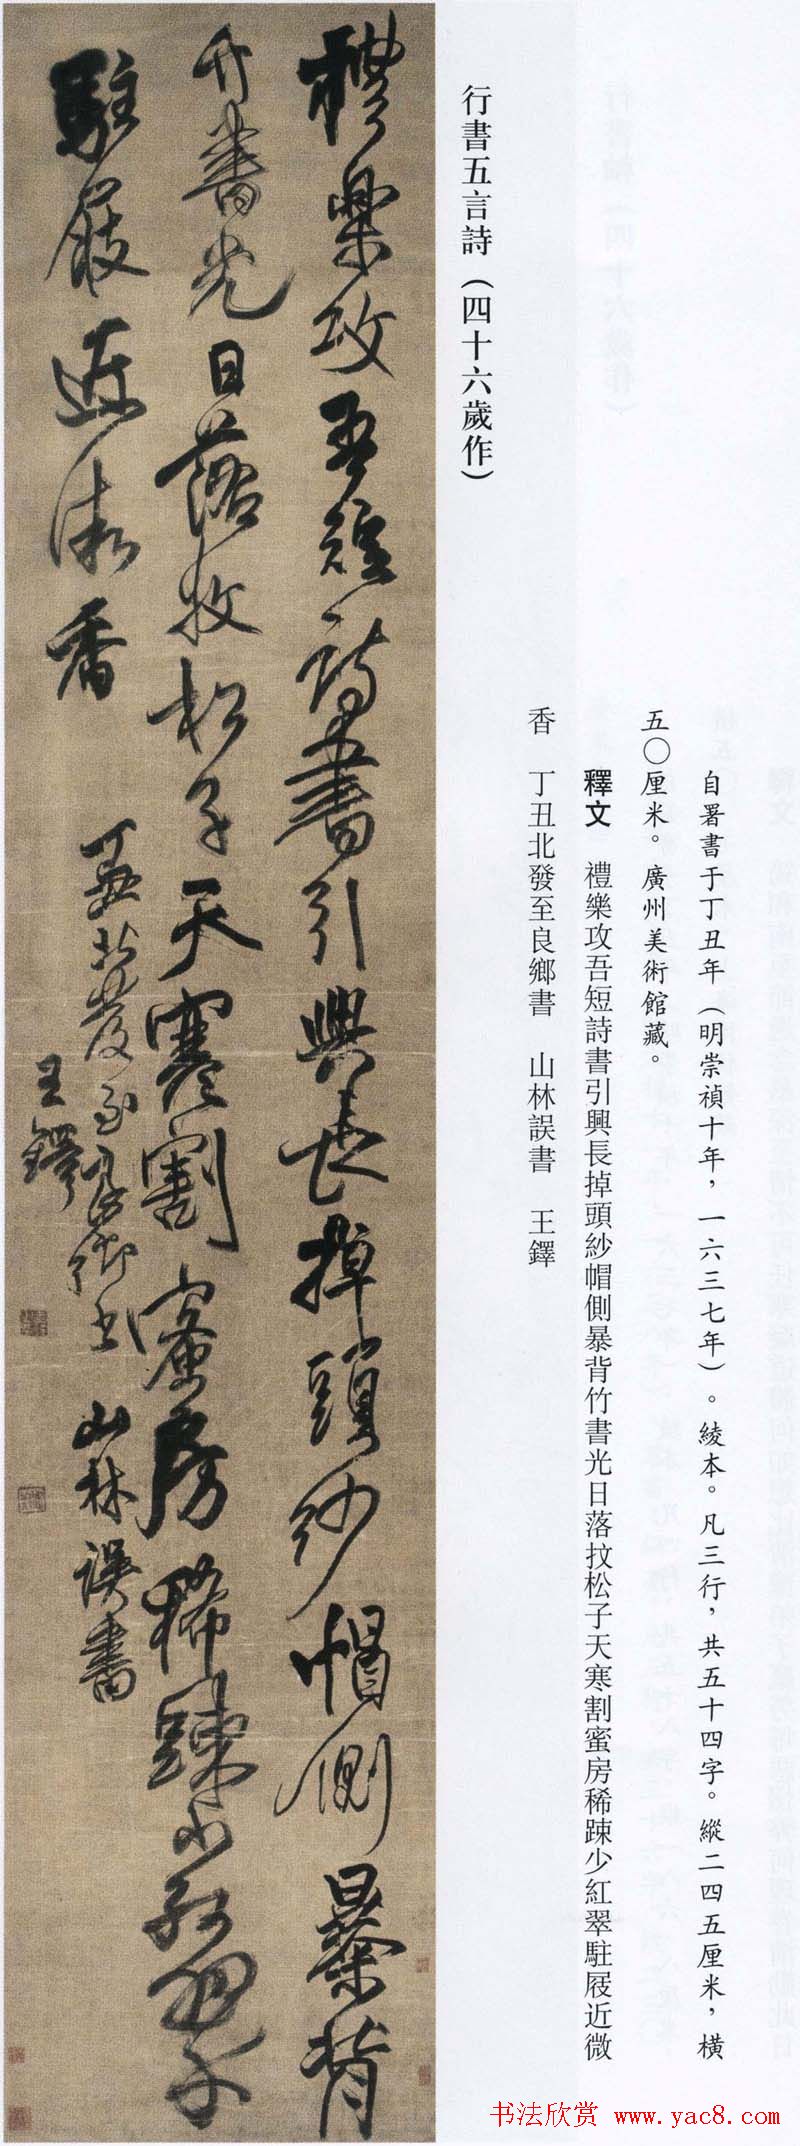 行書五言詩（四十六歲作）
自署書于丁丑年（明崇禎十年，一六三七年）。綾本。凡三行，共五十四字。縱二四五厘米，橫
五〇厘米。廣州美術館藏。
釋文　禮樂攻吾短詩書引興長掉頭紗帽側暴背竹書光日落抆松子天寒割蜜房稀踈少紅翠駐屐近微
香　丁丑北發至良鄉書　山林誤書　王鐸
禮樂攻吾短詩書引興長掉頭紗帽側暴背
竹書光日落收松子天寒割蜜房稀踈少紅翠
駐屐近微香
丁丑北發至良鄉書　山林誤書
王鐸
书法欣赏 www.yac8.com